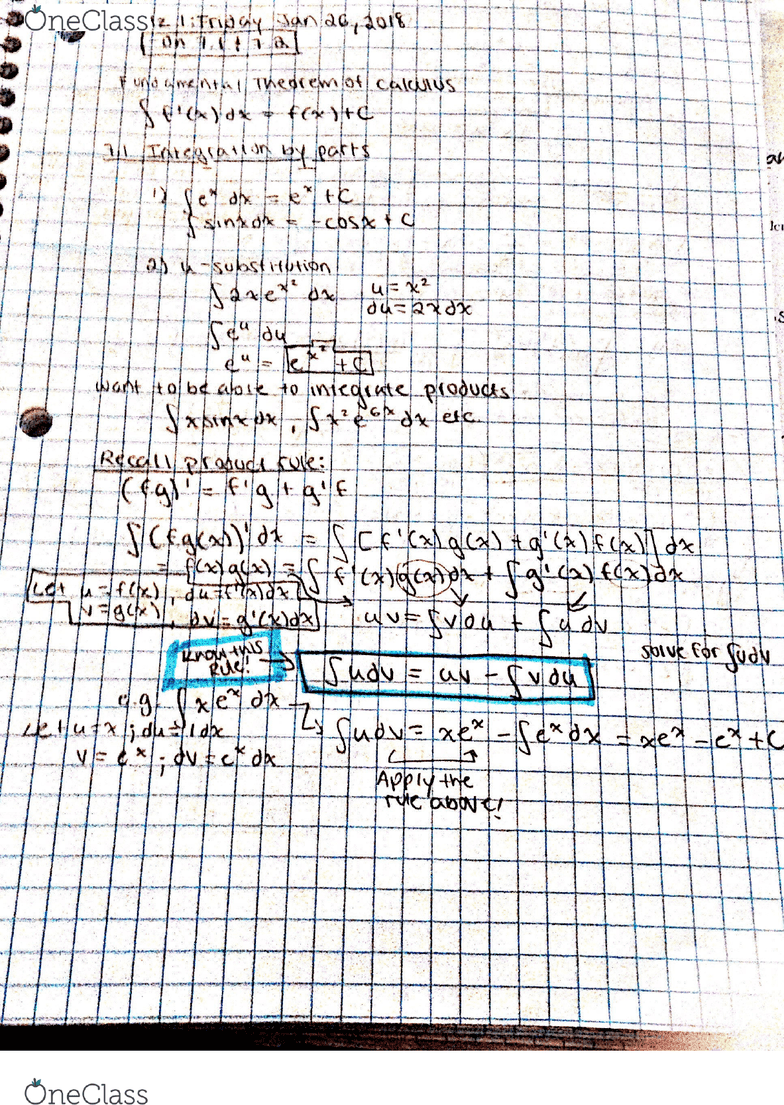 OneClass
z 1: Friday Jan 26, 2018
on 7.1 + 7.2
Fundamental Theorem of calculus
∫ f'(x) dx = f(x) + C
7.1 Integration by parts
1) ∫ eˣ dx = eˣ + C
∫ sinx dx = -cosx + C
2) u-substitution
∫ 2x e^x² dx u = x²
du = 2x dx
∫ eᵘ du
eᵘ = e^x² + C
want to be able to integrate products
∫ x sinx dx, ∫ x² e^6x dx etc.
Recall product rule:
(fg)' = f'g + g'f
∫ (fg(x))' dx = ∫ [f'(x)g(x) + g'(x)f(x)] dx
= f(x)g(x) = ∫ f'(x)g(x)dx + ∫ g'(x) f(x)dx
Let u = f(x), du = f'(x)dx
v = g(x), dv = g'(x)dx
uv = ∫ v du + ∫ u dv
solve for ∫udv
Know this
Rule! → ∫ udv = uv - ∫ v du
e.g. ∫ x eˣ dx
Let u = x ; du = 1dx
v = eˣ ; dv = eˣ dx
∫ udv = xeˣ - ∫ eˣ dx = xeˣ - eˣ + C
Apply the
rule above!
OneClass